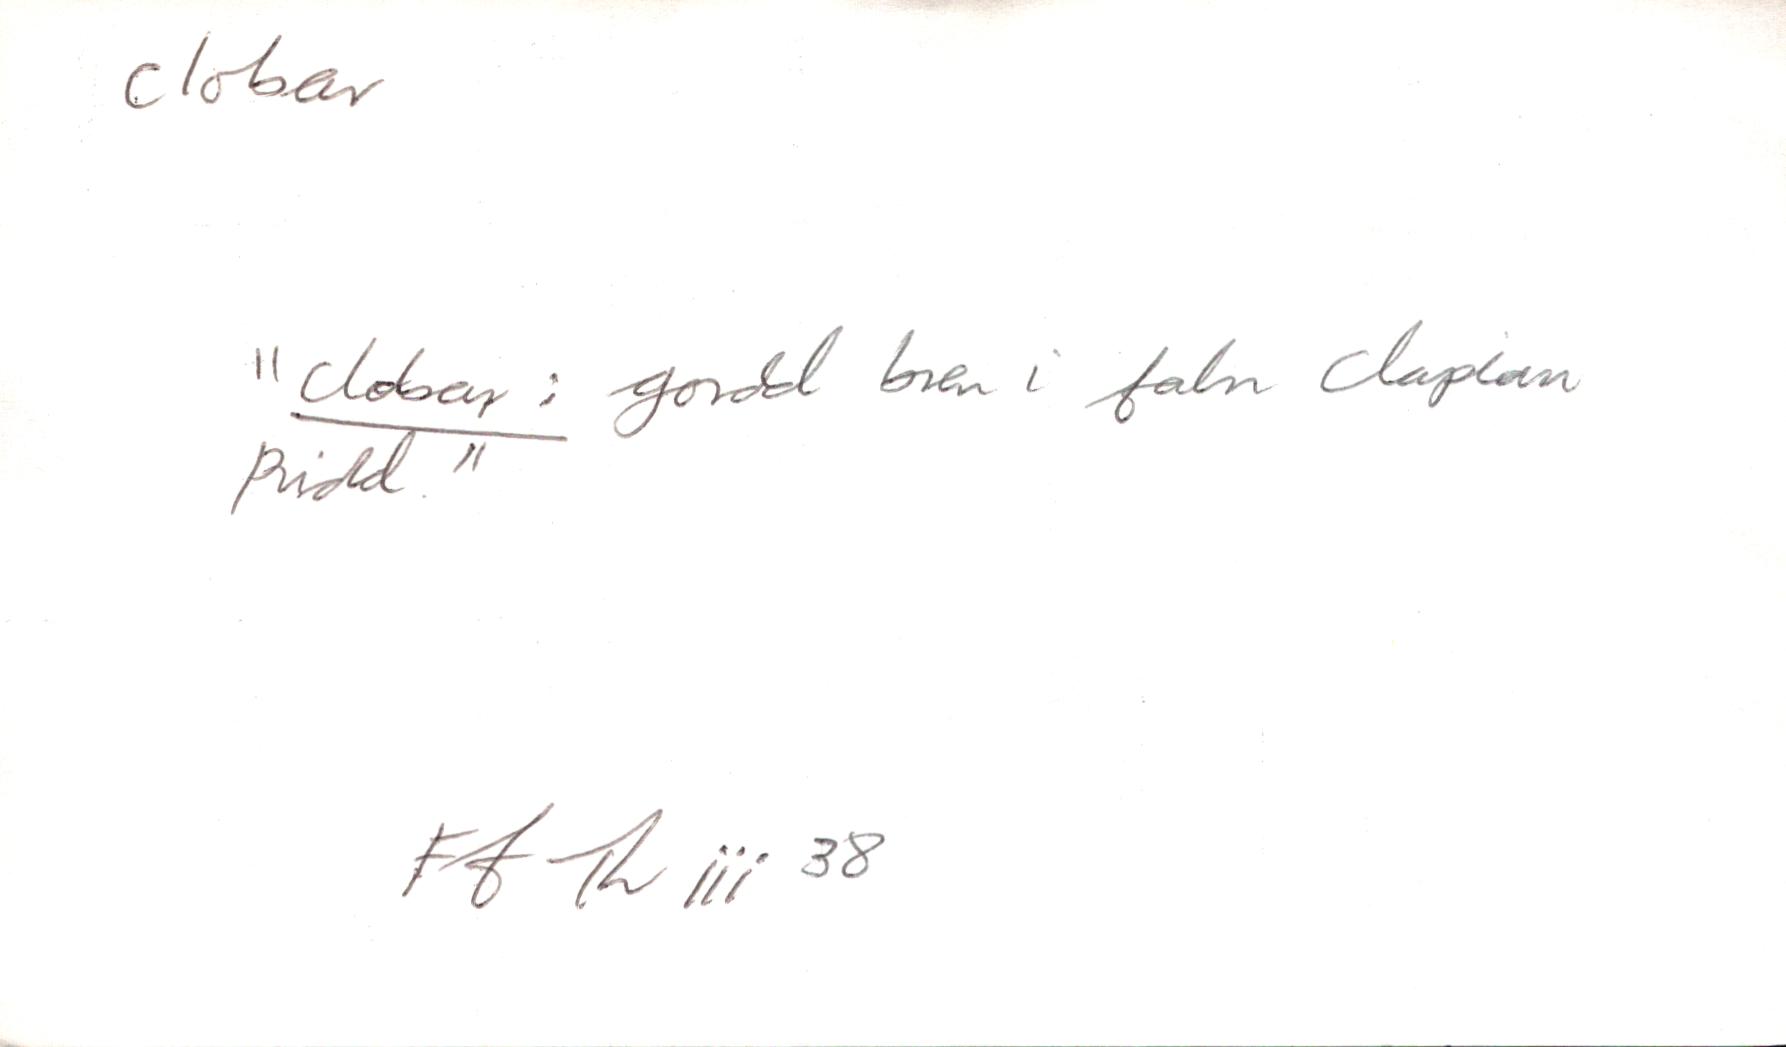 clobar
"clobar: gordd bren i falu clapiau
pridd."
Ff Th iii 38